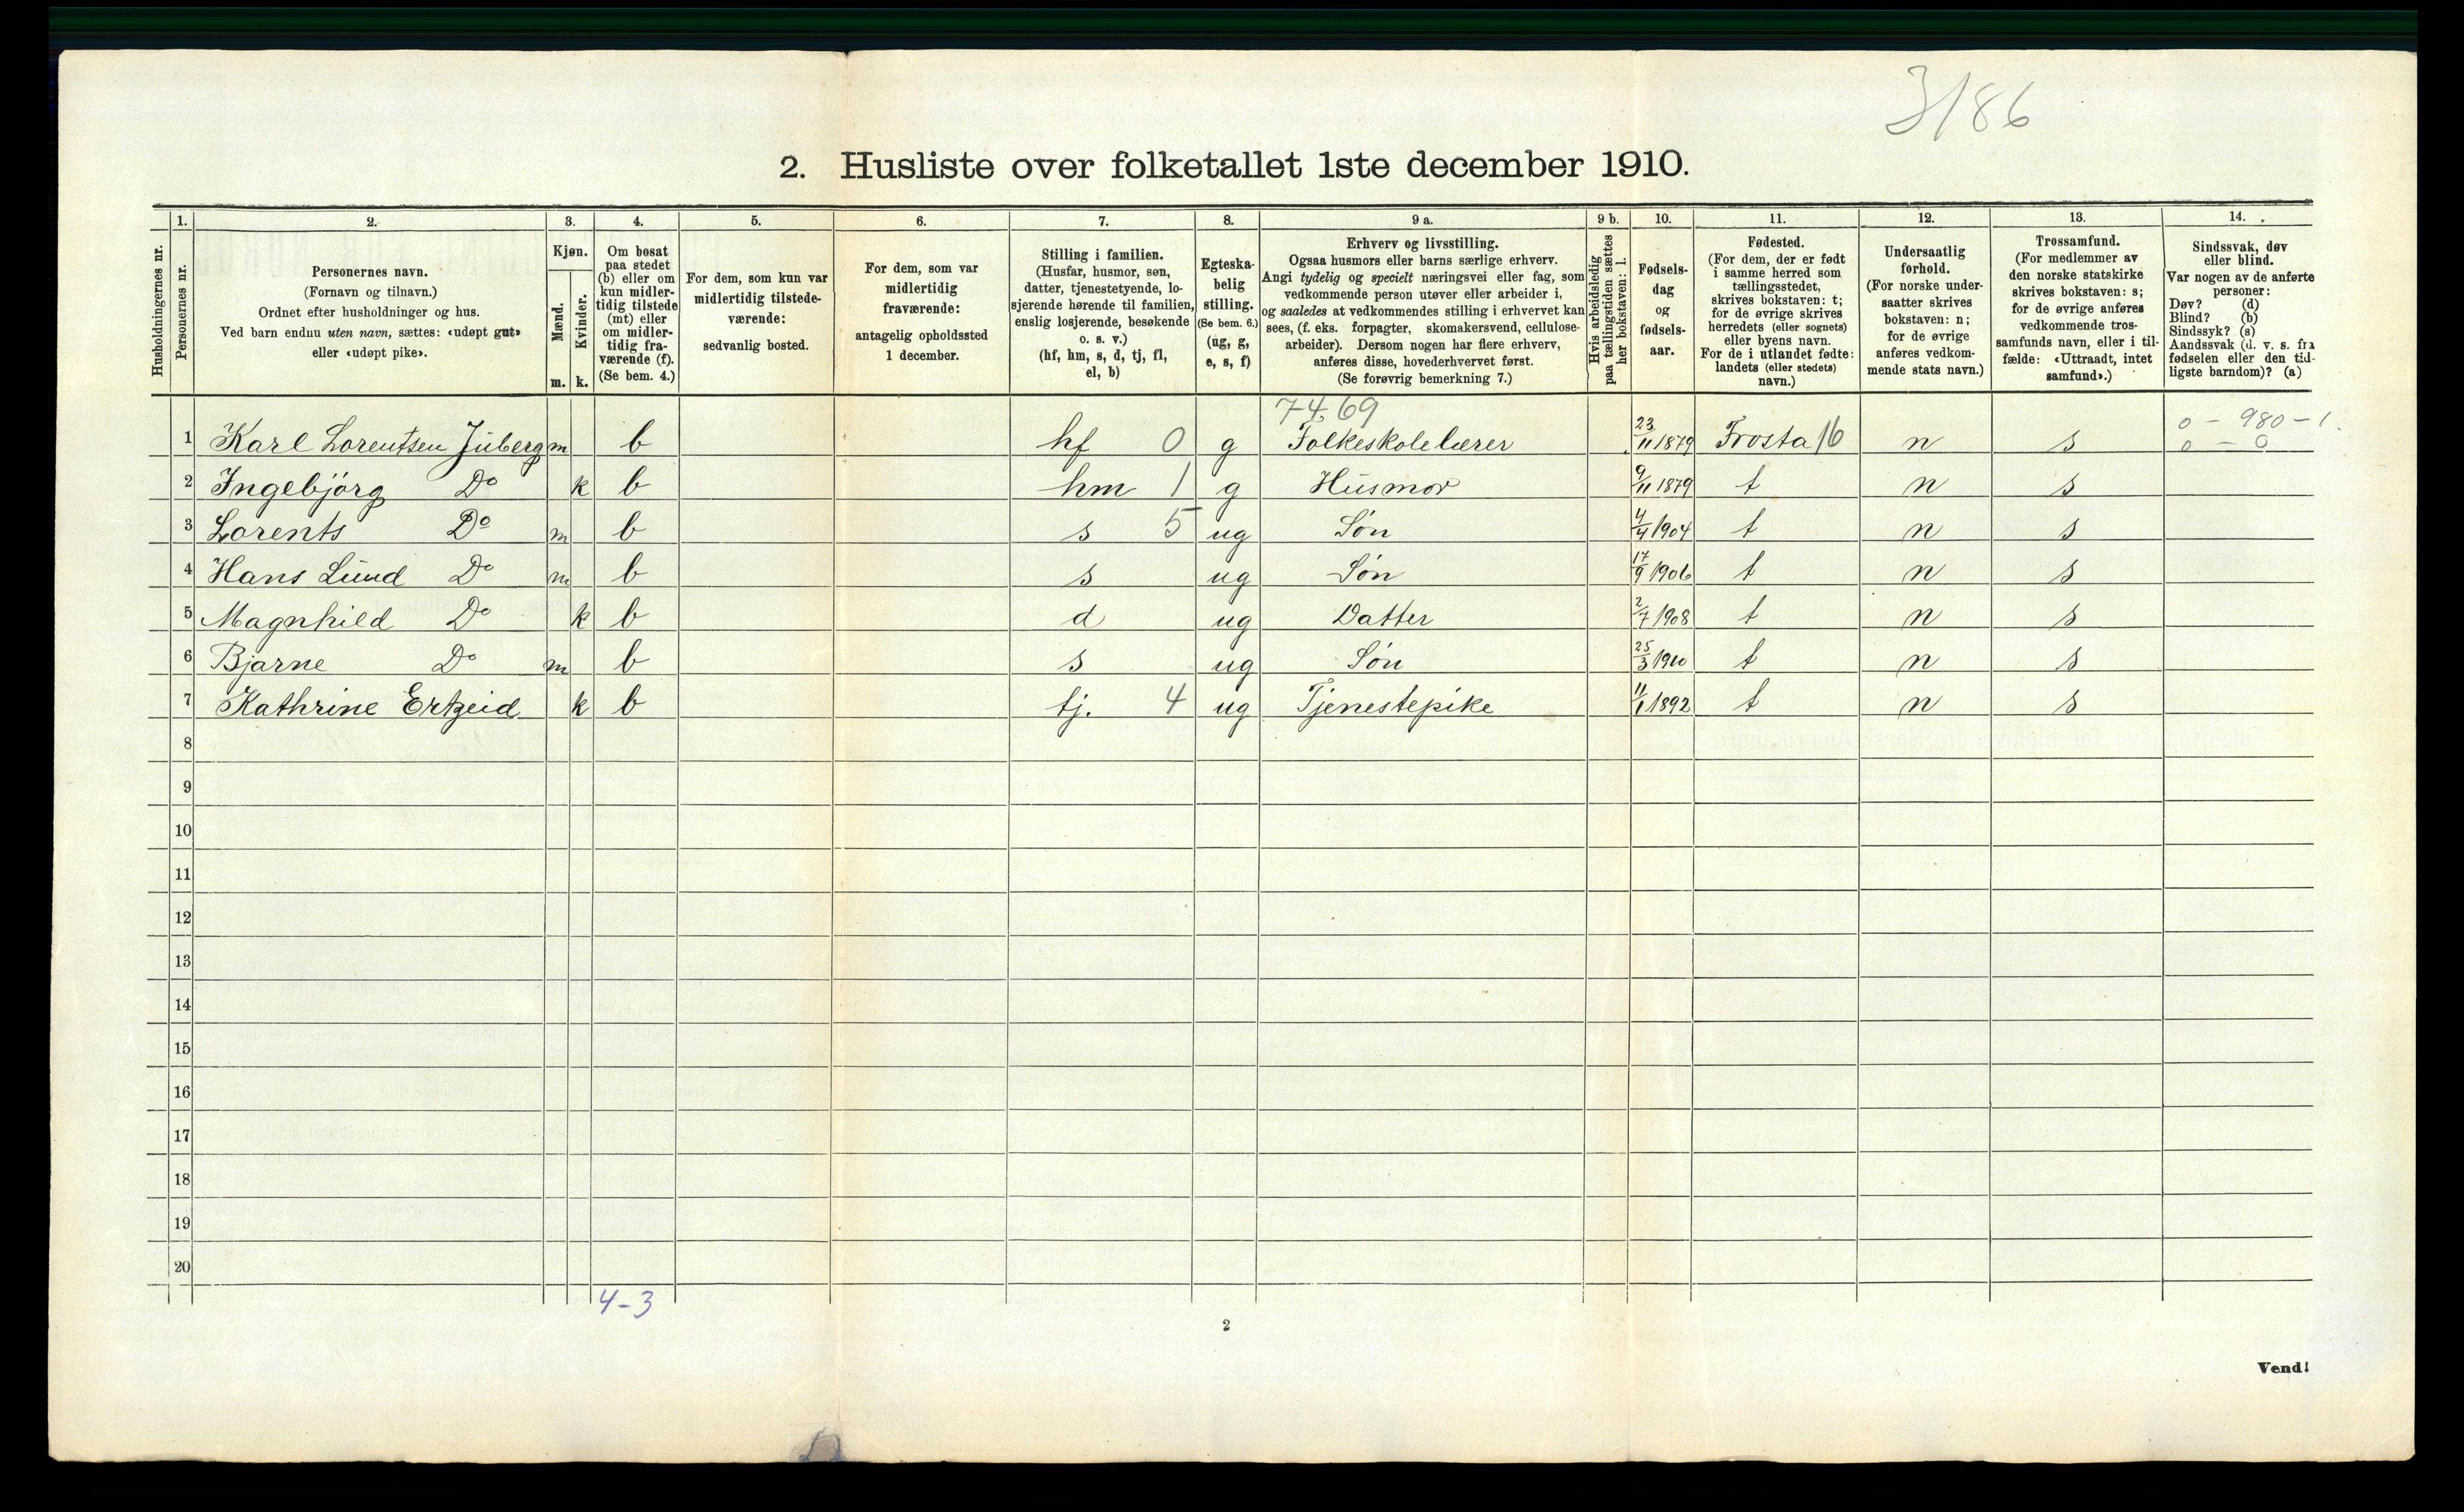 3186
2. Husliste over folketallet 1ste december 1910.
Husholdningernes nr.
1.
Personernes nr.
2.
Personernes navn.
(Fornavn og tilnavn.)
Ordnet efter husholdninger og hus.
Ved barn endnu uten navn, sættes: «udøpt gut»
eller «udøpt pike».
3.
Kjøn.
Mænd.
Kvinder.
m. k.
4.
Om bosat
paa stedet
(b) eller om
kun midler-
tidig tilstede
(mt) eller
om midler-
tidig fra-
værende (f).
(Se bem. 4.)
5.
For dem, som kun var
midlertidig tilstede-
værende:
sedvanlig bosted.
6.
For dem, som var
midlertidig
fraværende:
antagelig opholdssted
1 december.
7.
Stilling i familien.
(Husfar, husmor, søn,
datter, tjenestetyende, lo-
sjerende hørende til familien,
enslig losjerende, besøkende
o. s. v.)
(hf, hm, s, d, tj, fl,
el, b)
8.
Egteska-
belig
stilling.
(Se bem. 6.)
(ug, g,
e, s, f)
9 a.
Erhverv og livsstilling.
Ogsaa husmors eller barns særlige erhverv.
Angi tydelig og specielt næringsvei eller fag, som
vedkommende person utøver eller arbeider i,
og saaledes at vedkommendes stilling i erhvervet kan
sees, (f. eks. forpagter, skomakersvend, cellulose-
arbeider). Dersom nogen har flere erhverv,
anføres disse, hovederhvervet først.
(Se forøvrig bemerkning 7.)
9 b.
Hvis arbeidsledig
paa tællingstiden sættes
her bokstaven: l.
10.
Fødsels-
dag
og
fødsels-
aar.
11.
Fødested.
(For dem, der er født
i samme herred som
tællingsstedet,
skrives bokstaven: t;
for de øvrige skrives
herredets (eller sognets)
eller byens navn.
For de i utlandet fødte:
landets (eller stedets)
navn.)
12.
Undersaatlig
forhold.
(For norske under-
saatter skrives
bokstaven: n;
for de øvrige
anføres vedkom-
mende stats navn.)
13.
Trossamfund.
(For medlemmer av
den norske statskirke
skrives bokstaven: s;
for de øvrige anføres
vedkommende tros-
samfunds navn, eller i til-
fælde: «Uttraadt, intet
samfund».)
14.
Sindssvak, døv
eller blind.
Var nogen av de anførte
personer:
Døv? (d)
Blind? (b)
Sindssyk? (s)
Aandssvak (d. v. s. fra
fødselen eller den tid-
ligste barndom)? (a)
7469
0 - 980 - 1.
1 Karl Lorentsen Juberg m b hf 0 g Folkeskolelærer 23/11 1879 Frosta 16 n s 0 - 0
2 Ingebjörg Do k b hm 1 g Husmor 9/11 1879 t n s
3 Lorents Do m b s 5 ug Søn 4/4 1904 t n s
4 Hans Lund Do m b s ug Søn 17/9 1906 t n s
5 Magnhild Do k b d ug Datter 2/7 1908 t n s
6 Bjarne Do m b s ug Søn 25/3 1910 t n s
7 Kathrine k b tj. 4 ug Tjenestepike 11/1 1892 t n s
8
9
10
11
12
13
14
15
16
17
18
19
20
4-3
2
Vend!